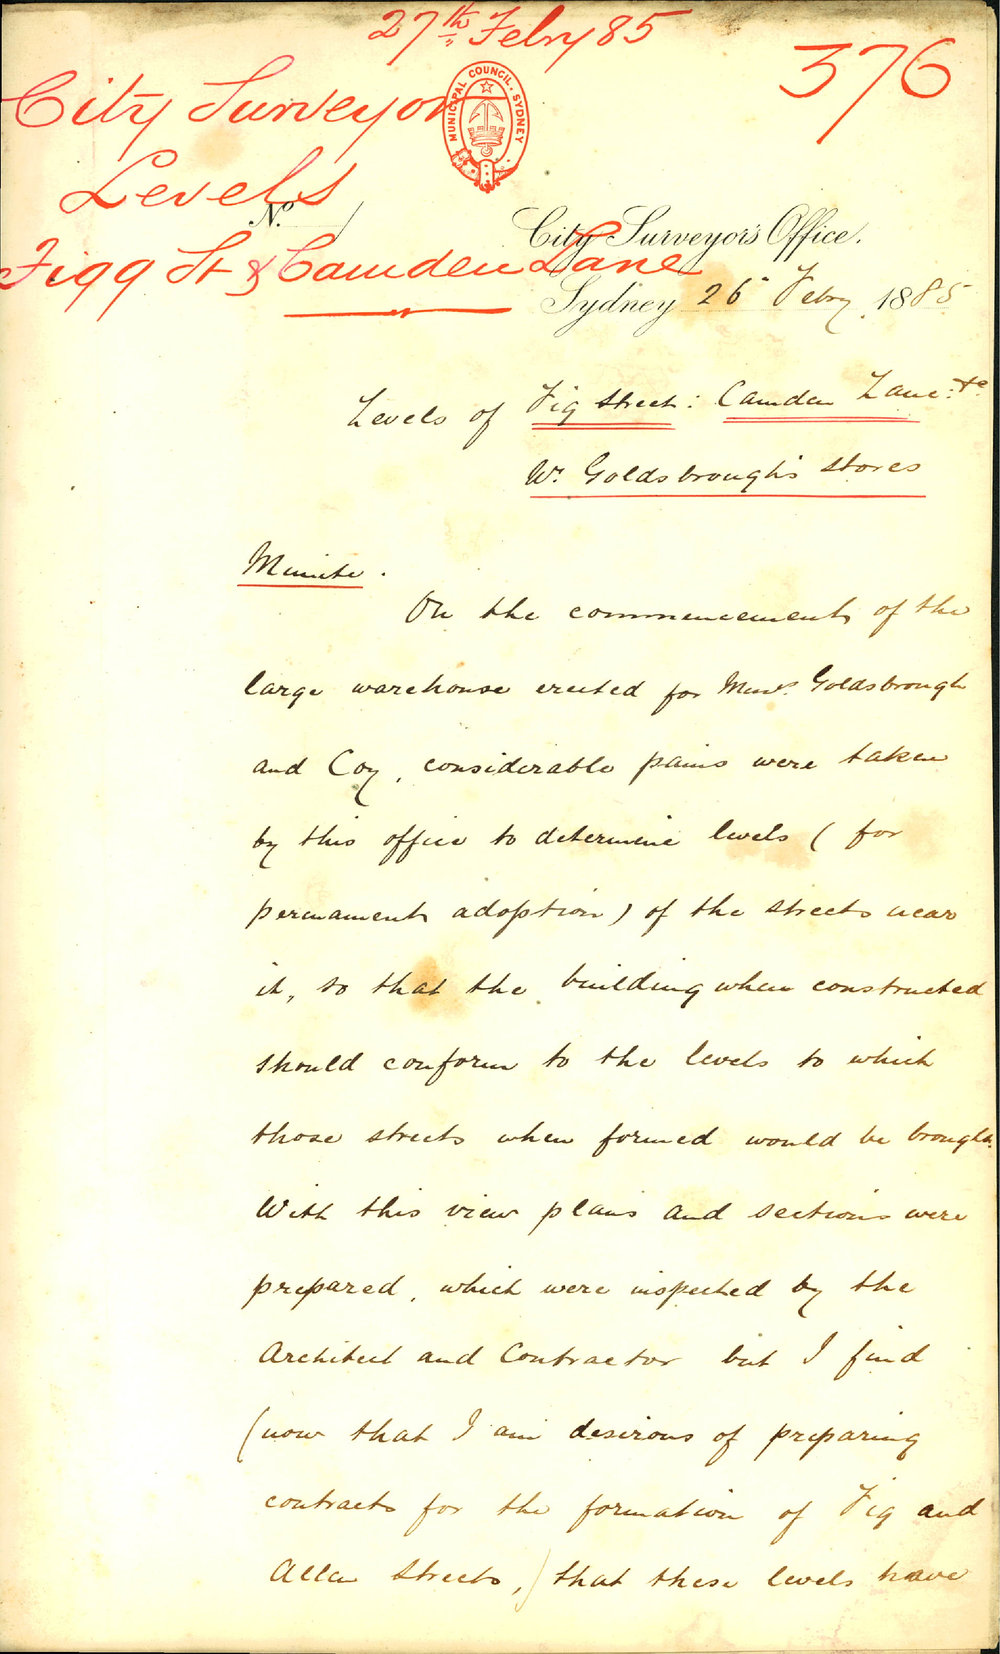 27th Febry 85
376
MUNICIPAL COUNCIL. SYDNEY
City Surveyor
Levels
No.
City Surveyor's Office.
Figg St & Camden Lane
Sydney 26 Febry 1885
Levels of Fig Street: Camden Lane: &c
Wr. Goldsbrough's Stores
Minute.
On the commencement of the
large warehouse erected for Messrs. Goldsbrough
and Coy, considerable pains were taken
by this office to determine levels (for
permanent adoption) of the streets near
it, so that the building when constructed
should conform to the levels to which
those streets when formed would be brought.
With this view plans and sections were
prepared, which were inspected by the
Architect and Contractor but I find
(now that I am desirous of preparing
contracts for the formation of Fig and
Allen Streets,) that these levels have